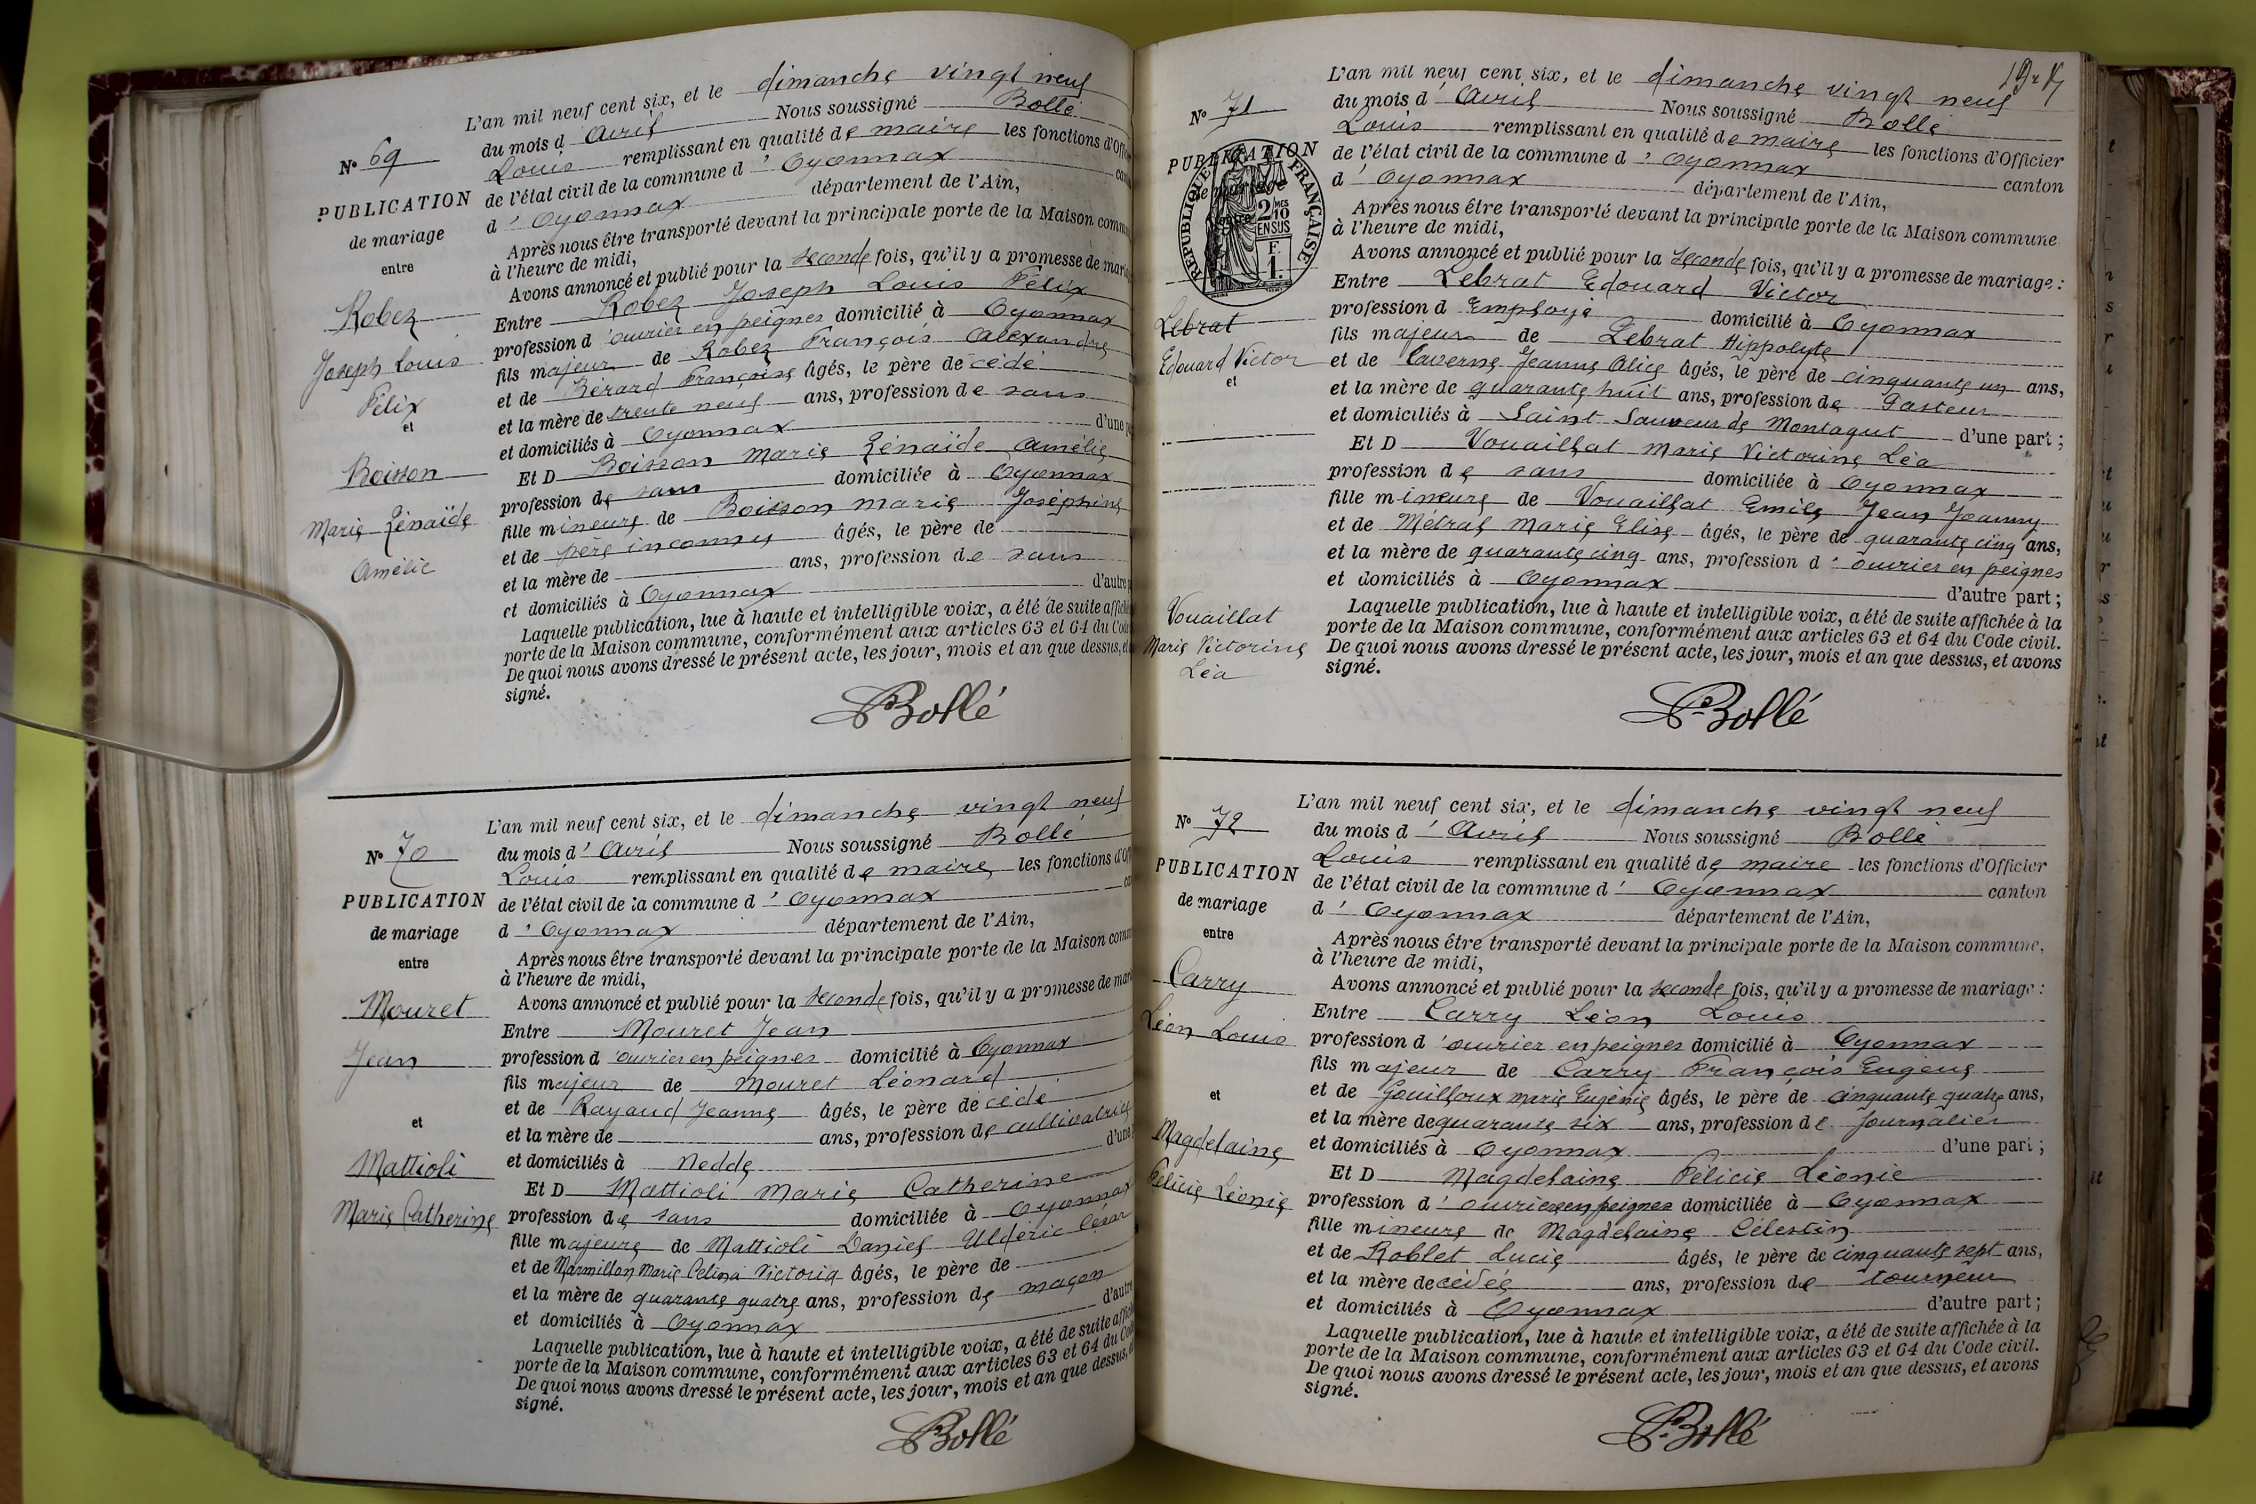 L'an mil neuf cent six, et le dimanche vingt neuf
N° 69
du mois d'Avril Nous soussigné Bollé
Louis remplissant en qualité de maire les fonctions d'Off
de l'état civil de la commune d'Oyonnax can
PUBLICATION
de mariage
entre
d'Oyonnax département de l'Ain,
Après nous être transporté devant la principale porte de la Maison comm
à l'heure de midi,
Avons annoncé et publié pour la seconde fois, qu'il y a promesse de maria
Robez
Joseph Louis
Félix
et
Entre Robez Joseph Louis Félix
profession d'ouvrier en peignes domicilié à Oyonnax
fils majeur de Robez François Alexandre
et de Bérard Françoise âgés, le père décédé
et la mère de trente neuf ans, profession de sans
et domiciliés à Oyonnax d'une p
Boisson
Marie Zénaïde
Amélie
Et D Boisson Marie Zénaïde Amélie
profession de sans domiciliée à Oyonnax
fille mineure de Boisson Marie Joséphine
et de père inconnu âgés, le père de
et la mère de ans, profession de sans
et domiciliés à Oyonnax d'autre p
Laquelle publication, lue à haute et intelligible voix, a été de suite affiché
porte de la Maison commune, conformément aux articles 63 et 64 du Code
De quoi nous avons dressé le présent acte, les jour, mois et an que dessus, et
signé.
Bollé
L'an mil neuf cent six, et le dimanche vingt neuf
N° 70
du mois d'Avril Nous soussigné Bollé
Louis remplissant en qualité de maire les fonctions d'Off
PUBLICATION
de mariage
entre
de l'état civil de la commune d'Oyonnax ca
d'Oyonnax département de l'Ain,
Après nous être transporté devant la principale porte de la Maison comm
à l'heure de midi,
Avons annoncé et publié pour la seconde fois, qu'il y a promesse de mar
Mouret
Jean
et
Entre Mouret Jean
profession d'ouvrier en peignes domicilié à Oyonnax
fils majeur de Mouret Léonard
et de Rayaud Jeanne âgés, le père décédé
et la mère de ans, profession de cultivatrice
et domiciliés à Nedde d'une
Mattioli
Marie Catherine
Et D Mattioli Marie Catherine
profession de sans domiciliée à Oyonnax
fille majeure de Mattioli Daniel Uldéric César
et de Marmillon Marie Célina Victoria âgés, le père de
et la mère de quarante quatre ans, profession de maçon
et domiciliés à Oyonnax d'autre
Laquelle publication, lue à haute et intelligible voix, a été de suite affich
porte de la Maison commune, conformément aux articles 63 et 64 du Code
De quoi nous avons dressé le présent acte, les jour, mois et an que dessus,
signé.
Bollé
L'an mil neuf cent six, et le dimanche vingt neuf
N° 71
du mois d'Avril Nous soussigné Bollé
Louis remplissant en qualité de maire les fonctions d'Officier
PUBLICATION
de mariage
entre
REPUBLIQUE FRANÇAISE
2/10 MES
EN SUS
F.
1.
de l'état civil de la commune d'Oyonnax canton
d'Oyonnax département de l'Ain,
Après nous être transporté devant la principale porte de la Maison commune
à l'heure de midi,
Avons annoncé et publié pour la seconde fois, qu'il y a promesse de mariage :
Lebrat
Edouard Victor
et
Entre Lebrat Edouard Victor
profession d Employé domicilié à Oyonnax
fils majeur de Lebrat Hippolyte
et de Laverne Jeanne Alice âgés, le père de cinquante un ans,
et la mère de quarante huit ans, profession de Pasteur
et domiciliés à Saint Sauveur de Montagut d'une part ;
Vouaillat
Marie Victorine
Léa
Et D Vouaillat Marie Victorine Léa
profession de sans domiciliée à Oyonnax
fille mineure de Vouaillat Emile Jean Joanny
et de Métral Marie Elise âgés, le père de quarante cinq ans,
et la mère de quarante cinq ans, profession d'ouvrier en peignes
et domiciliés à Oyonnax d'autre part ;
Laquelle publication, lue à haute et intelligible voix, a été de suite affichée à la
porte de la Maison commune, conformément aux articles 63 et 64 du Code civil.
De quoi nous avons dressé le présent acte, les jour, mois et an que dessus, et avons
signé.
Bollé
L'an mil neuf cent six, et le dimanche vingt neuf
N° 72
du mois d'Avril Nous soussigné Bollé
Louis remplissant en qualité de maire les fonctions d'Officier
PUBLICATION
de mariage
entre
de l'état civil de la commune d'Oyonnax canton
d'Oyonnax département de l'Ain,
Après nous être transporté devant la principale porte de la Maison commune,
à l'heure de midi,
Avons annoncé et publié pour la seconde fois, qu'il y a promesse de mariage :
Carry
Léon Louis
et
Entre Carry Léon Louis
profession d'ouvrier en peignes domicilié à Oyonnax
fils majeur de Carry François Eugène
et de Gouilloux Marie Eugénie âgés, le père de cinquante quatre ans,
et la mère de quarante six ans, profession de Journalier
et domiciliés à Oyonnax d'une part ;
Magdelaine
Félicie Léonie
Et D Magdelaine Félicie Léonie
profession d'ouvrière en peignes domiciliée à Oyonnax
fille mineure de Magdelaine Célestin
et de Roblet Lucie âgés, le père de cinquante sept ans,
et la mère décédée ans, profession de tourneur
et domiciliés à Oyonnax d'autre part ;
Laquelle publication, lue à haute et intelligible voix, a été de suite affichée à la
porte de la Maison commune, conformément aux articles 63 et 64 du Code civil.
De quoi nous avons dressé le présent acte, les jour, mois et an que dessus, et avons
signé.
Bollé